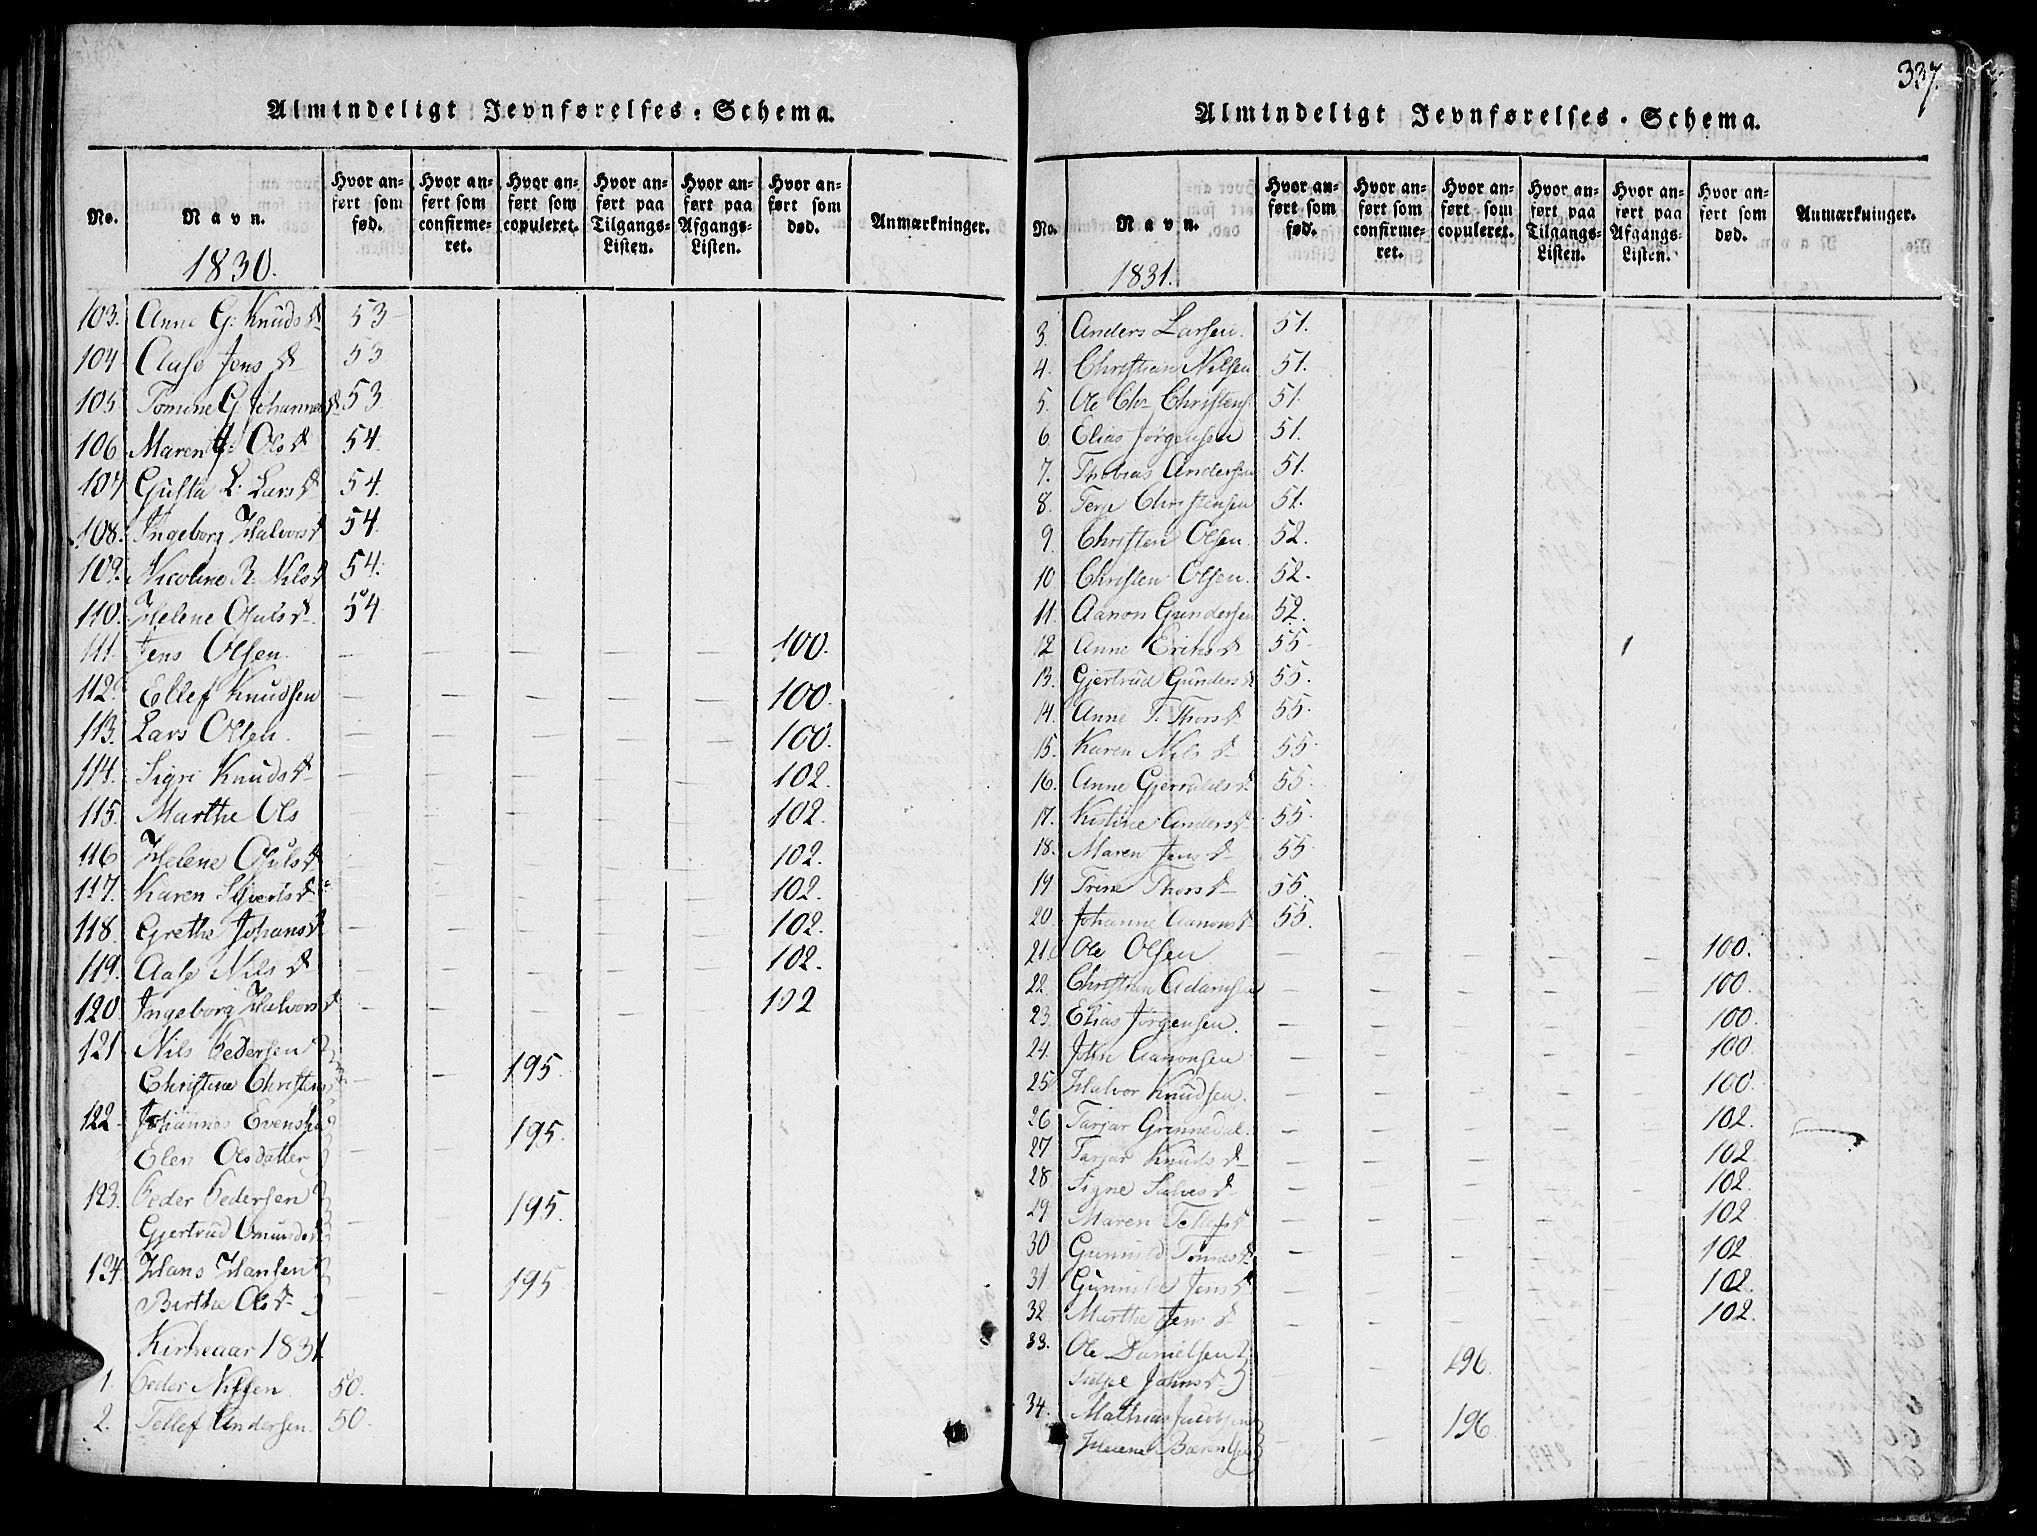 337.
Almindeligt Jevnførelses-Schema.
No. Navn. Hvor anført som fød. Hvor anført som confirmeret. Hvor anført som copuleret. Hvor anført paa Tilgangs-Listen. Hvor anført paa Afgangs-Listen. Hvor anført som død. Anmærkninger.
1830.
103. Anne G: Knudsd 53
104 Aase Jens d 53
105 Tomine G. Johannesd 53
106 Maren Ols d 54.
107 Gusta L. Lars d 54.
108. Ingeborg Halvorsd 54
109. Nicoline R. Nilsd 54.
110. Helene Olufs d 54
111. Jens Olsen. 100.
112. Ellef Knudsen 100.
113. Lars Olsen. 100.
114. Sigri Knuds d 102.
115. Marthe Ols 102.
116 Helene Olufs d 102.
117. Karen Sivertsd 102.
118. Grethe Johansd 102.
119. Aase Nils d 102.
120 Ingeborg Halvorsd 102
121 Nils Pedersen
Christine Christens 195.
122 Johannes Evensen
Elen Olsdatter 195.
123. Peder Pedersen
Gjertrud Omundsd 195.
124. Hans Hansen
Birthe Ols d 195.
Kirkeaar 1831
1. Peder Nilsen 50.
2. Tellef Andersen. 50.
Almindeligt Jevnførelses-Schema.
No. Navn. Hvor anført som fød. Hvor anført som confirmeret. Hvor anført som copuleret. Hvor anført paa Tilgangs-Listen. Hvor anført paa Afgangs-Listen. Hvor anført som død. Anmærkninger.
1831.
3. Anders Larsen. 51.
4. Christian Nilsen 51.
5. Ole Chr Christens. 51.
6 Elias Jørgensen 51.
7. Thobias Andersen 51.
8. Terje Christensen 51.
9. Christen Olsen. 52.
10 Christen Olsen. 52.
11. Aanon Gundersen 52.
12 Anne Eriks d 55
13. Gjertrud Gunders d 55.
14. Anne T. Thors d 55.
15. Karen Nils d 55.
16. Anne Gjerulds d 55.
17. Kistine Anders d 55.
18. Maren Jens d 55
19 Trine Thors d 55.
20. Johanne Aanons d 55.
21. Ole Olsen 100.
22. Christian Adamsen 100.
23. Elias Jørgensen. 100.
24. John Aanonsen 100.
25 Halvor Knudsen. 100.
26 Tarjar Grennedal. 102.
27 Tarjar Knuds d 102
28 Signe Salves d 102.
29 Maren Tellefs d 102
30 Gunnild Tonnes d 102
31 Gunnild Jens d 102.
32. Marthe Jens d 102.
33. Ole Danielsen
Johns d 196.
34. Mathias Jacobsen
Helene 196.